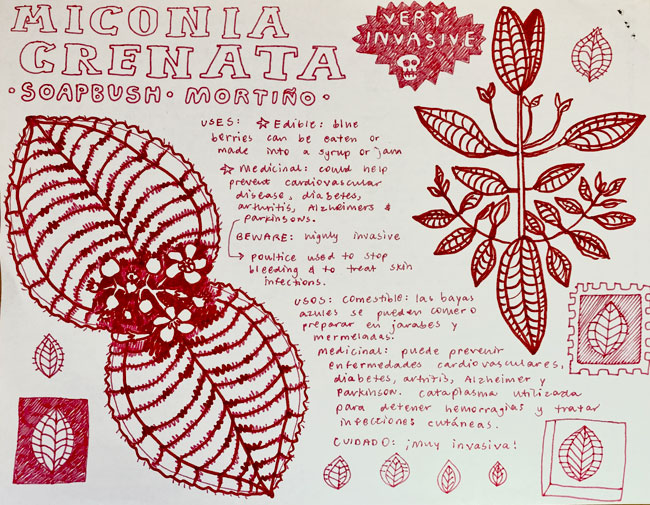 MICONIA
CRENATA
·SOAPBUSH· MORTIÑO·
VERY
INVASIVE
USES: ☆ Edible: blue
berries can be eaten or
made into a syrup or jam
☆ Medicinal: could help
prevent cardiovascular
disease, diabetes,
arthuritis, Alzheimers &
parkinsons.
BEWARE: highly invasive
→ poultice used to stop
bleeding & to treat skin
infections.
USOS: Comestible: las bayas
azules se pueden comer o
preparar en jarabes y
mermeladas.
Medicinal: puede prevenir
enfermedades cardiovasculares,
diabetes, arthitis, Alzheimer y
Parkinson. Cataplasma utilizada
para detener hemorragias y tratar
infecciones cutáneas.
CUIDADO: ¡Muy invasiva!